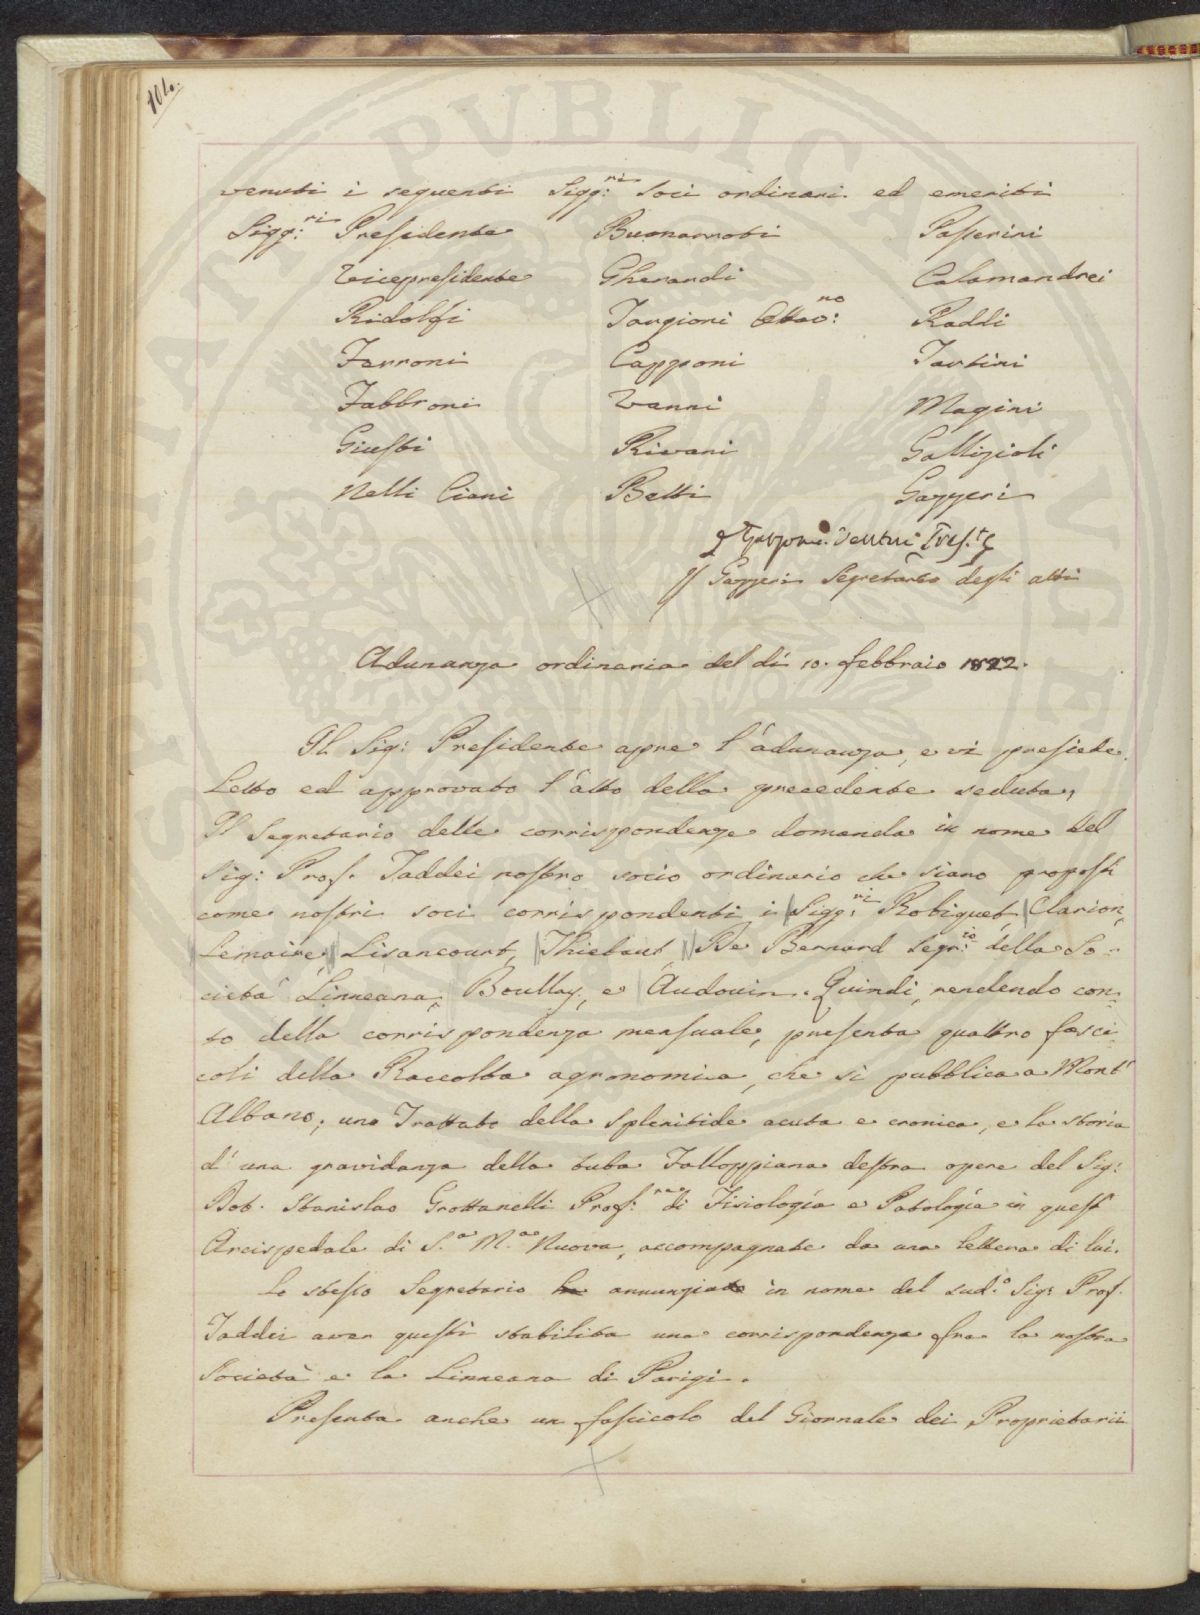 101.
venuti i seguenti Sigg:ri Soci ordinari ed emeriti
Sigg:ri Presidente Buonarroti Passerini
Vicepresidente Gherardi Calamandrei
Ridolfi Targioni Ottav:no Raddi
Ferroni Capponi Tartini
Fabbroni Vanni Magini
Giusti Rivani Gallizioli
Nelli Ciani Betti Gazzeri
Garzoni Venturi Pres.te
Gazzeri Segretario degli atti
Adunanza ordinaria del dì 10. febbraio 1822.
Il Sig: Presidente apre l'adunanza, e vi presiede.
Letto ed approvato l'atto della precedente seduta,
Il Segretario delle corrispondenze domanda in nome del
Sig: Prof. Taddei nostro socio ordinario che siano proposti
come nostri soci corrispondenti i Sigg:ri Robiquet, Clarion,
Lemaire, Lisancourt, Thiebaut, De Bernard Segr:io della So-
cietà Linneana, Boullay, e Audouin. Quindi, rendendo con-
to della corrispondenza mensuale, presenta quattro fasci-
coli della Raccolta agronomica, che si pubblica a Mont'
Albano; uno Trattato della Splenitide acuta e cronica, e la storia
d'una gravidanza della tuba Falloppiana destra opere del Sig:
Dot. Stanislao Grottanelli Prof:re di Fisiologia e Patologia in quest'
Arcispedale di S.a M.a Nuova, accompagnate da una lettera di lui.
Lo stesso Segretario ha annunziato in nome del sud.o Sig: Prof.
Taddei aver questi stabilita una corrispondenza fra la nostra
Società e la Linneana di Parigi.
Presenta anche un fascicolo del Giornale dei Proprietarii